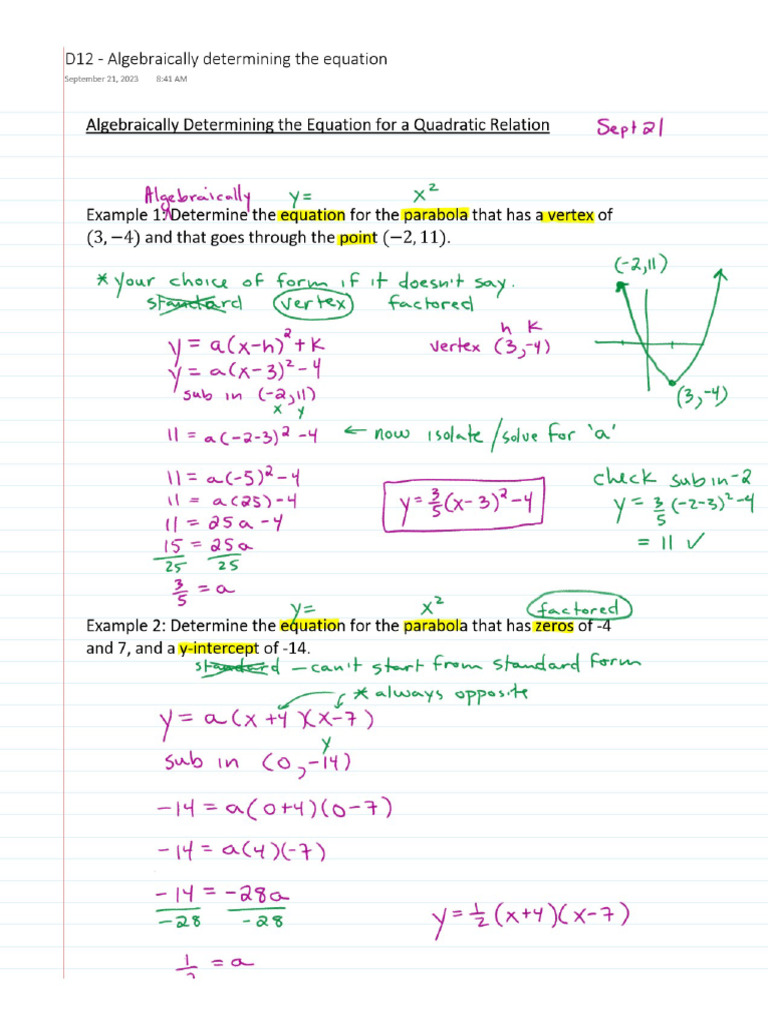 D12 - Algebraically determining the equation
September 21, 2023 8:41 AM
Algebraically Determining the Equation for a Quadratic Relation Sept 21
Algebraically y= x²
Example 1: Determine the equation for the parabola that has a vertex of
(3, −4) and that goes through the point (−2, 11).
(-2,11)
* your choice of form if it doesn't say.
standard vertex factored
h k
y = a(x-h)² + k vertex (3,-4)
y = a(x-3)² - 4
(3,-4)
sub in (-2,11)
x y
11 = a(-2-3)² - 4 ← now isolate/solve for 'a'
11 = a(-5)² - 4 check sub in -2
11 = a(25) - 4 y = 3/5 (x-3)² - 4 y = 3/5 (-2-3)² - 4
11 = 25a - 4
15 = 25a = 11 ✓
25 25
3/5 = a
y= x² factored
Example 2: Determine the equation for the parabola that has zeros of -4
and 7, and a y-intercept of -14.
standard - can't start from standard form
* always opposite
y = a(x+4)(x-7)
y
sub in (0,-14)
-14 = a(0+4)(0-7)
-14 = a(4)(-7)
-14 = -28a
-28 -28 y = 1/2 (x+4)(x-7)
1/2 = a